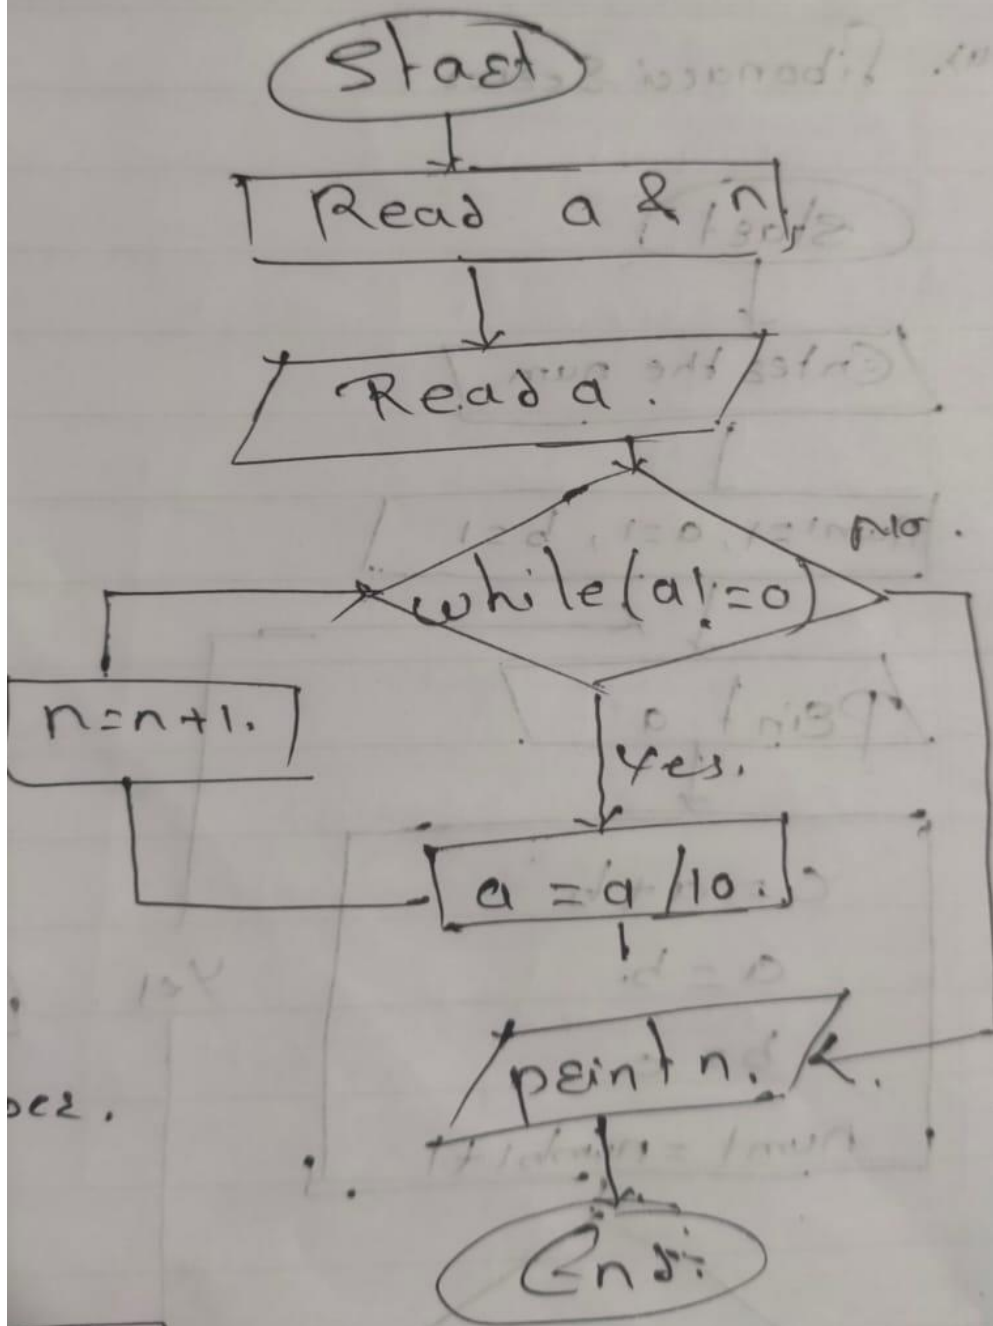 Start
Read a & n,
Read a.
No.
while(a!=0)
n=n+1.
Yes.
a = a/10.
print n.
End.